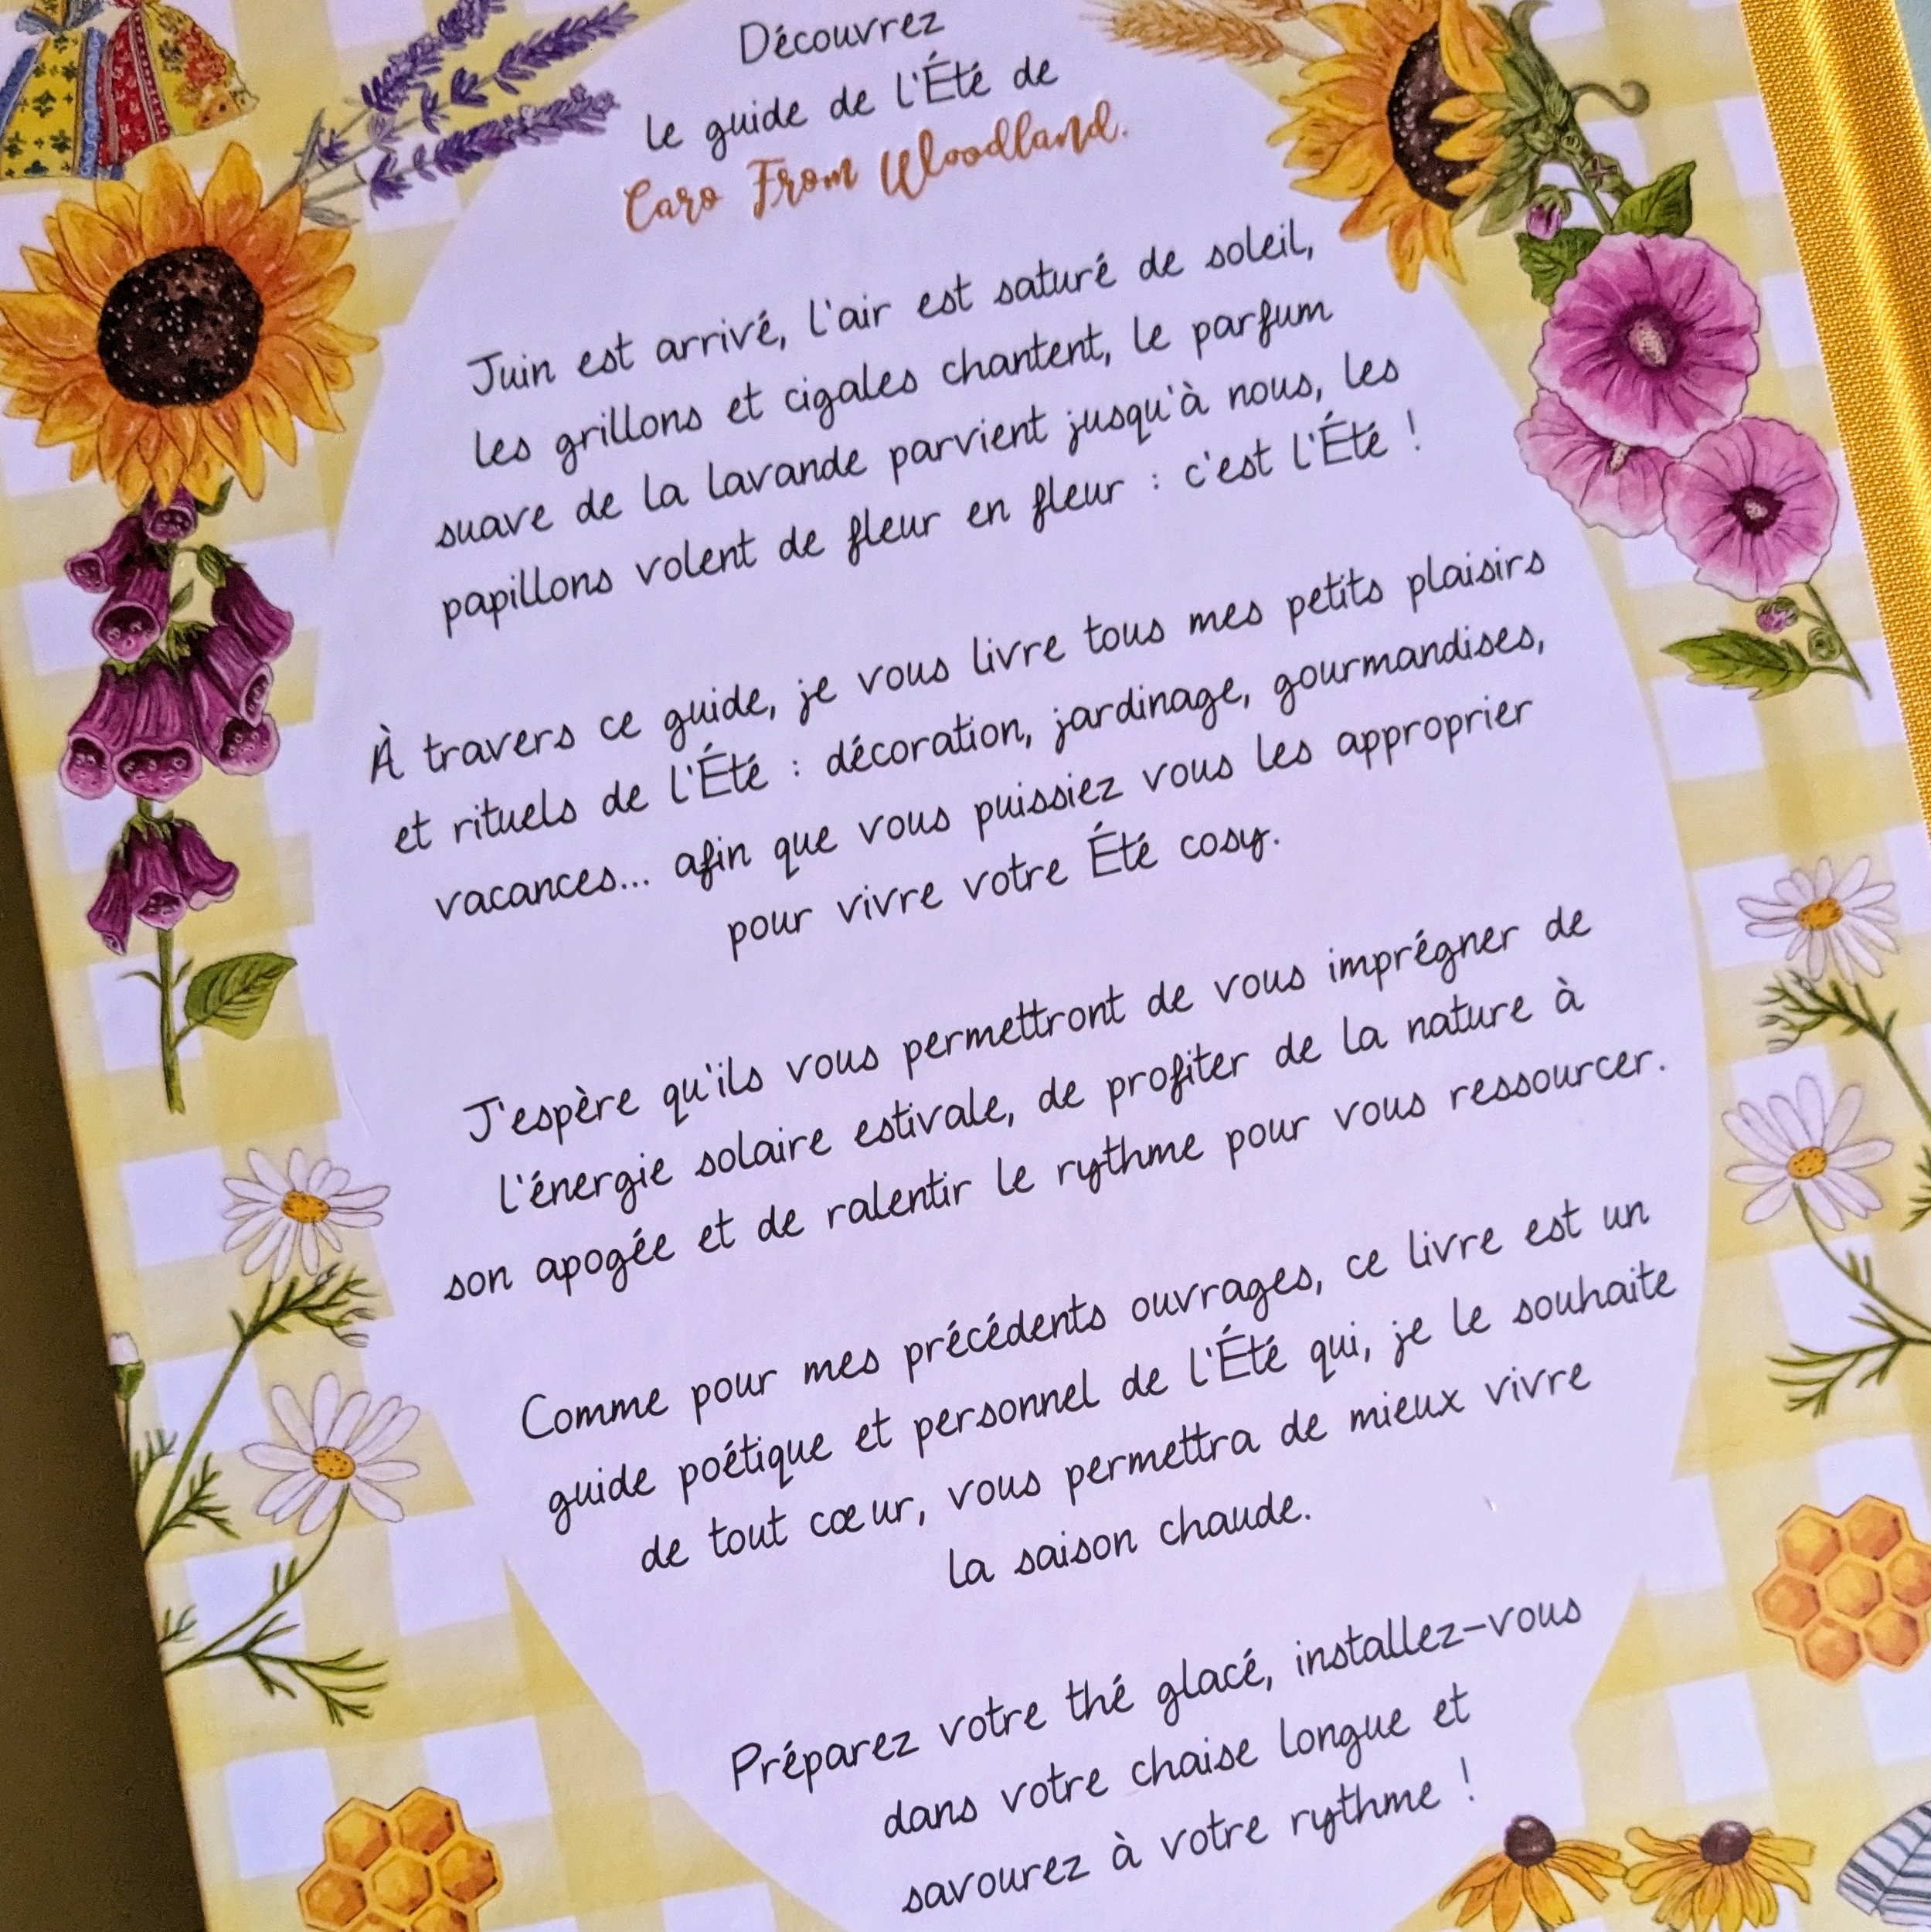 Découvrez
le guide de l'Été de
Caro From Woodland.
Juin est arrivé, l'air est saturé de soleil,
les grillons et cigales chantent, le parfum
suave de la lavande parvient jusqu'à nous, les
papillons volent de fleur en fleur : c'est l'Été !
À travers ce guide, je vous livre tous mes petits plaisirs
et rituels de l'Été : décoration, jardinage, gourmandises,
vacances... afin que vous puissiez vous les approprier
pour vivre votre Été cosy.
J'espère qu'ils vous permettront de vous imprégner de
l'énergie solaire estivale, de profiter de la nature à
son apogée et de ralentir le rythme pour vous ressourcer.
Comme pour mes précédents ouvrages, ce livre est un
guide poétique et personnel de l'Été qui, je le souhaite
de tout cœur, vous permettra de mieux vivre
la saison chaude.
Préparez votre thé glacé, installez-vous
dans votre chaise longue et
savourez à votre rythme !